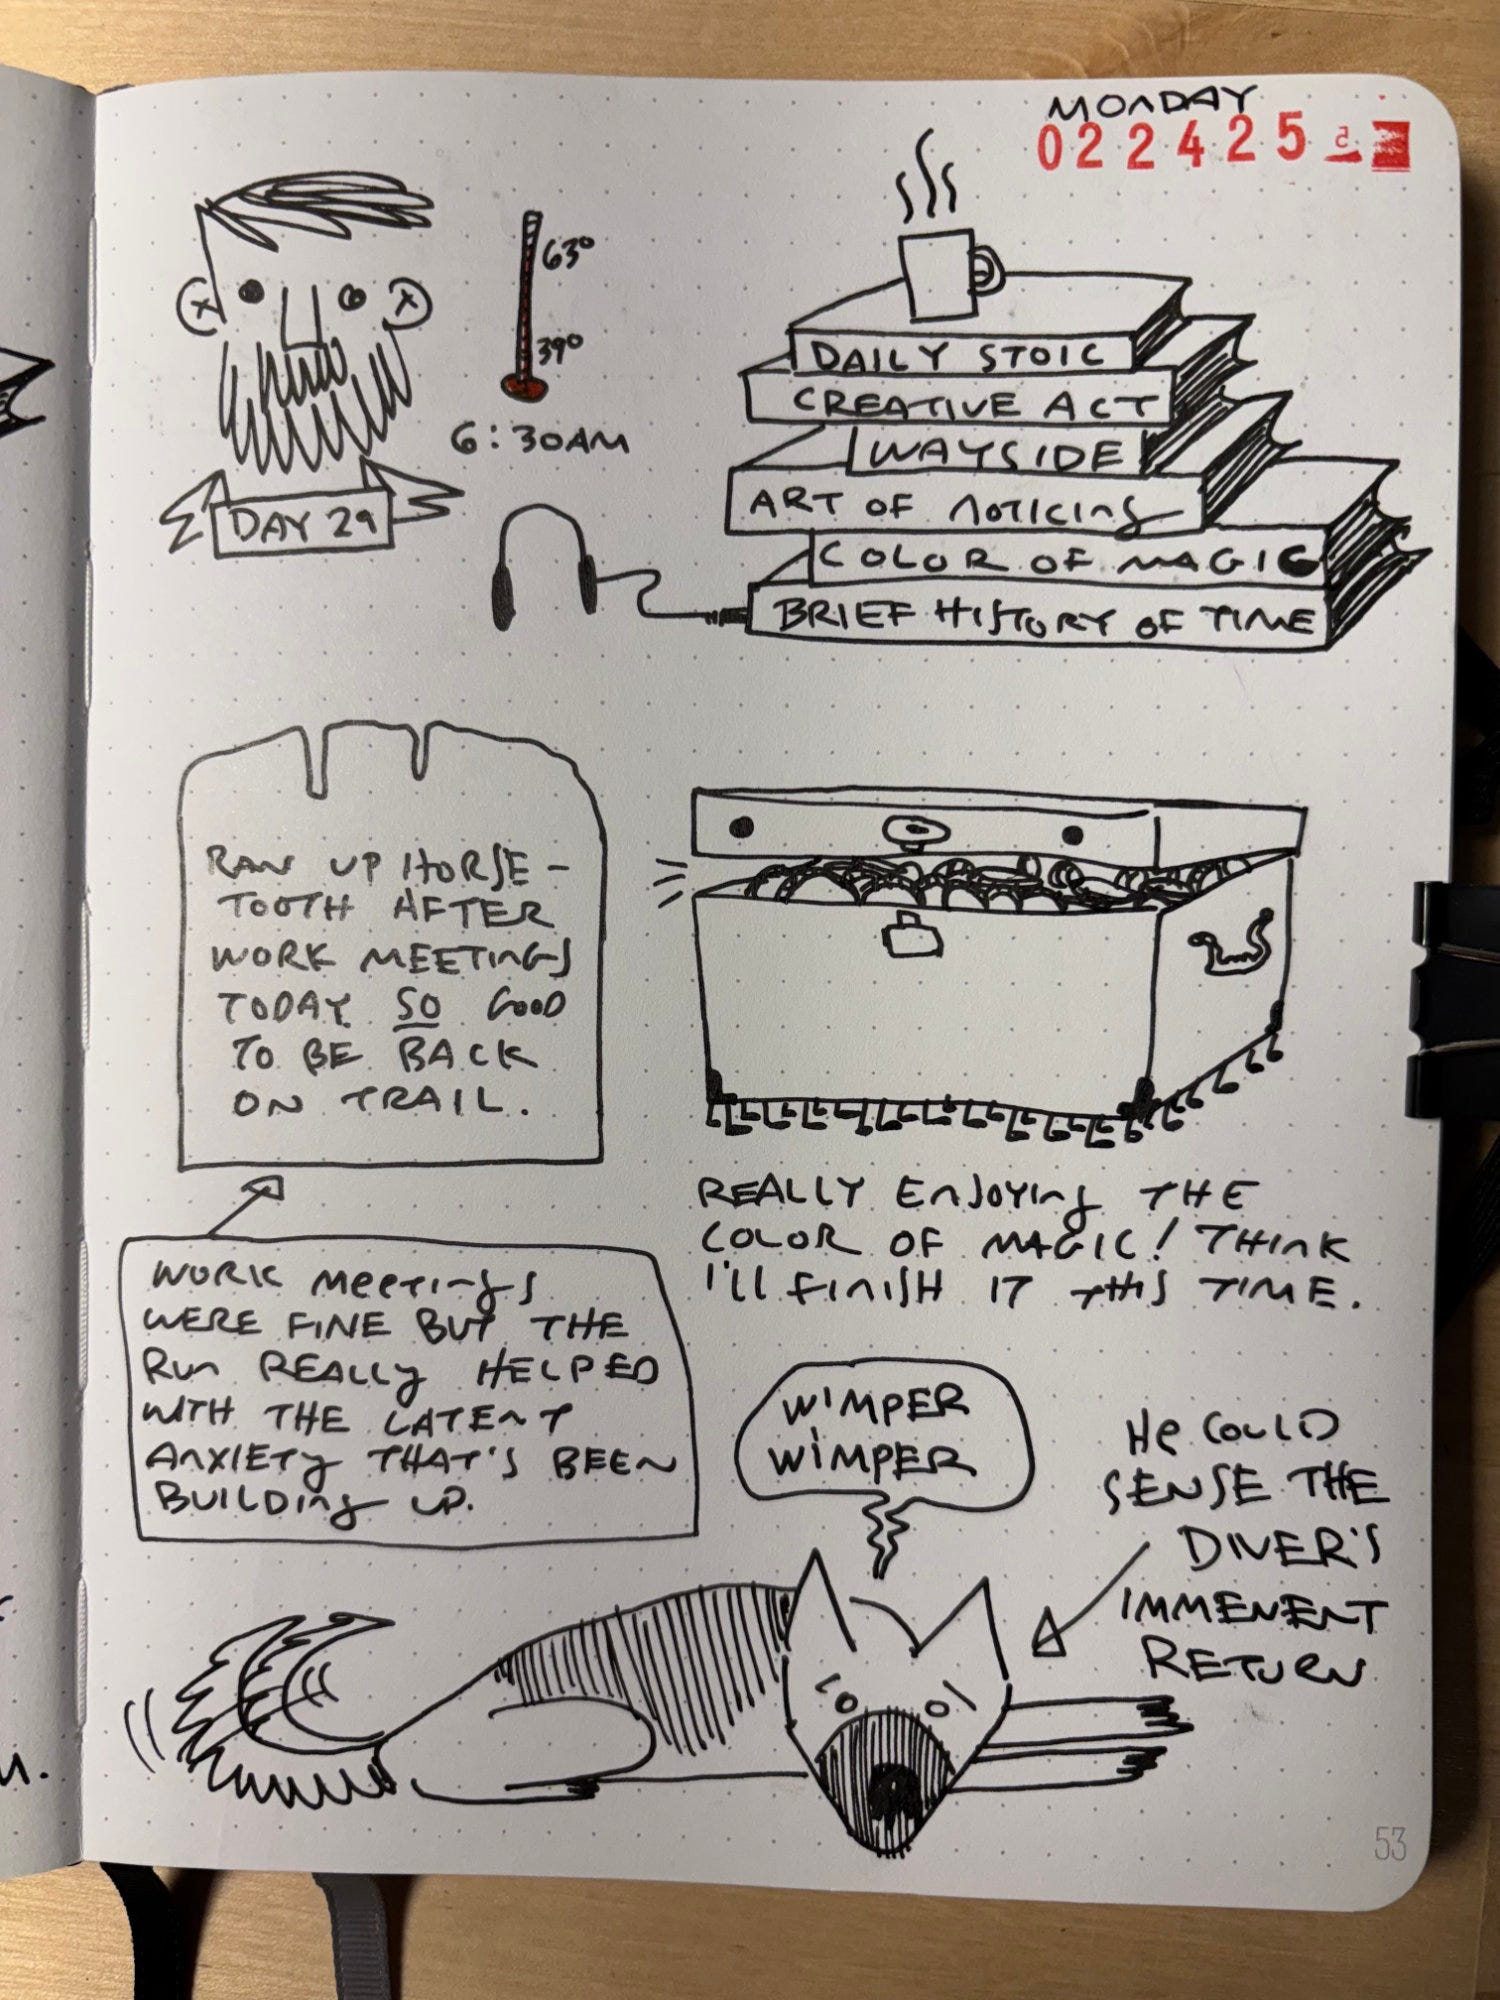 MONDAY
022425
63°
39°
6:30AM
DAY 29
DAILY STOIC
CREATIVE ACT
WAYSIDE
ART OF NOTICING
COLOR OF MAGIC
BRIEF HISTORY OF TIME
RAN UP HORSE-
TOOTH AFTER
WORK MEETINGS
TODAY. SO GOOD
TO BE BACK
ON TRAIL.
WORK MEETINGS
WERE FINE BUT THE
RUN REALLY HELPED
WITH THE LATENT
ANXIETY THAT'S BEEN
BUILDING UP.
REALLY ENJOYING THE
COLOR OF MAGIC! THINK
I'LL FINISH IT THIS TIME.
WIMPER
WIMPER
HE COULD
SENSE THE
DIVER'S
IMMENENT
RETURN
53